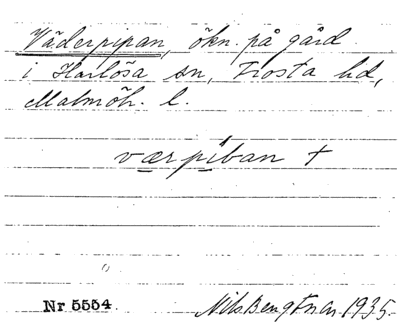 Väderpipan, ökn. på gård
i Harlösa sn, Frosta hd,
Malmöh. l.
værpiban +
Nr 5554. Nils Bengtsson 1935.